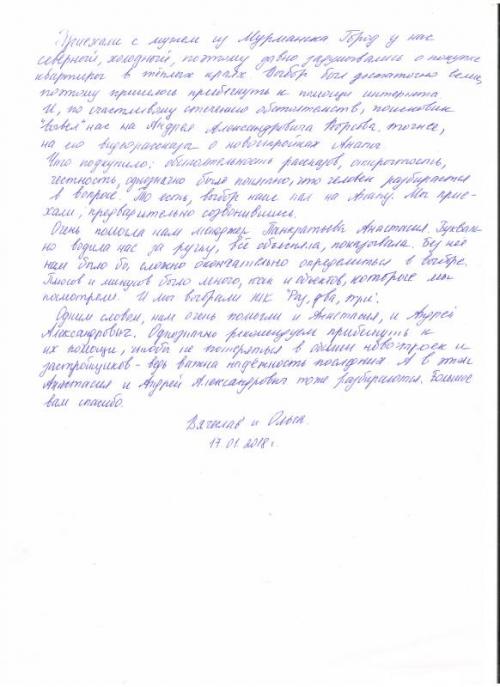 Приехали с мужем из Мурманска Город у нас
северный, холодный, поэтому давно задумывались о покупке
квартиры в тёплых краях Выбор был достаточно велик,
поэтому пришлось прибегнуть к помощи интернета
И, по счастливому стечению обстоятельств, поисковик
"вывел" нас на Андрея Александровича точнее,
на его видеорассказа о новостройках Анапы.
Что подкупило: обстоятельность рассказов, открытость,
честность, однозначно было понятно, что человек разбирается
в вопросе. То есть, выбор наш пал на Анапу. Мы прие-
хали, предварительно созвонившись.
Очень помогла нам менеджер Панкратьева Анастасия. Букваль-
но водила нас за ручку, всё объясняла, показывала. Без неё
нам было бы сложно окончательно определиться в выборе.
Плюсов и минусов было много, как и объектов, которые мы
посмотрели. И мы выбрали ЖК "Раз, два, три".
Одним словом, нам очень помогли и Анастасия, и Андрей
Александрович. Однозначно рекомендуем прибегнуть к
их помощи, чтобы не потеряться в обилии новостроек и
застройщиков - ведь важна надёжность последних А в этом
Анастасия и Андрей Александрович тоже разбираются. Большое
вам спасибо.
Вячеслав и Ольга.
17.01.2018 г.